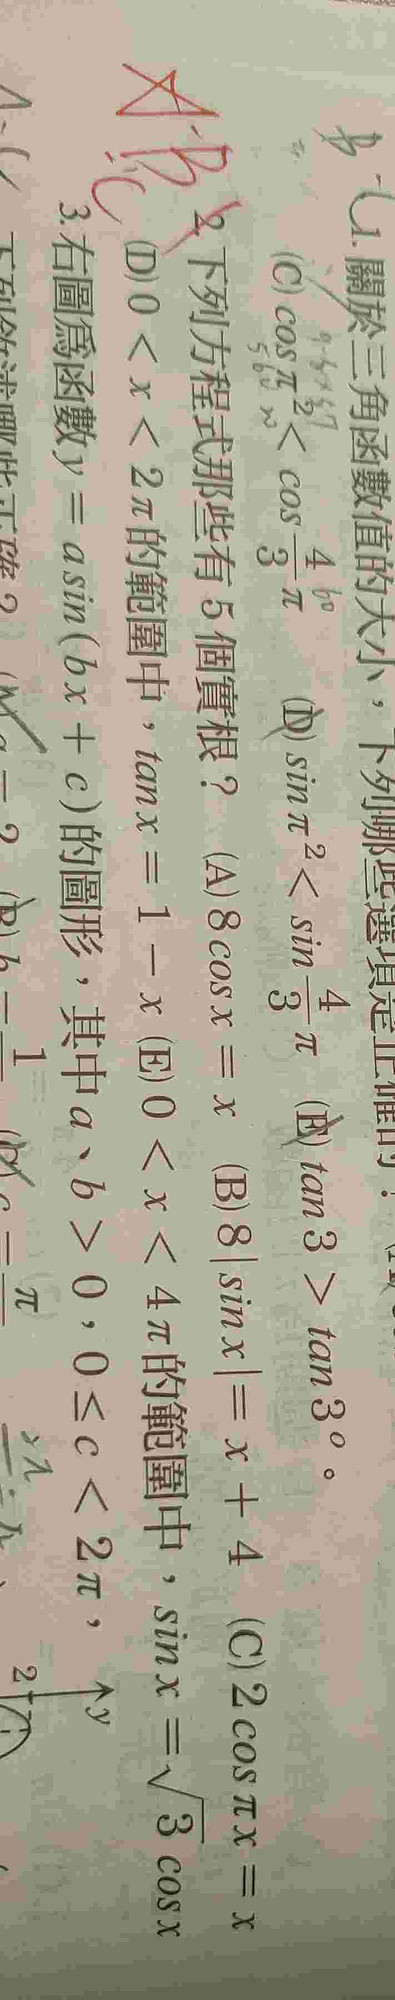 1.關於三角函數值的大小，下列哪些選項是正確的？
(C) cos π² < cos 4/3 π (D) sin π² < sin 4/3 π (E) tan 3 > tan 3°。
2.下列方程式那些有5個實根？ (A) 8 cos x = x (B) 8|sin x| = x + 4 (C) 2 cos πx = x
(D) 0 < x < 2π的範圍中，tan x = 1 − x (E) 0 < x < 4π的範圍中，sin x = √3 cos x
3.右圖爲函數y = a sin(bx + c)的圖形，其中a、b > 0，0 ≤ c < 2π，
y
2